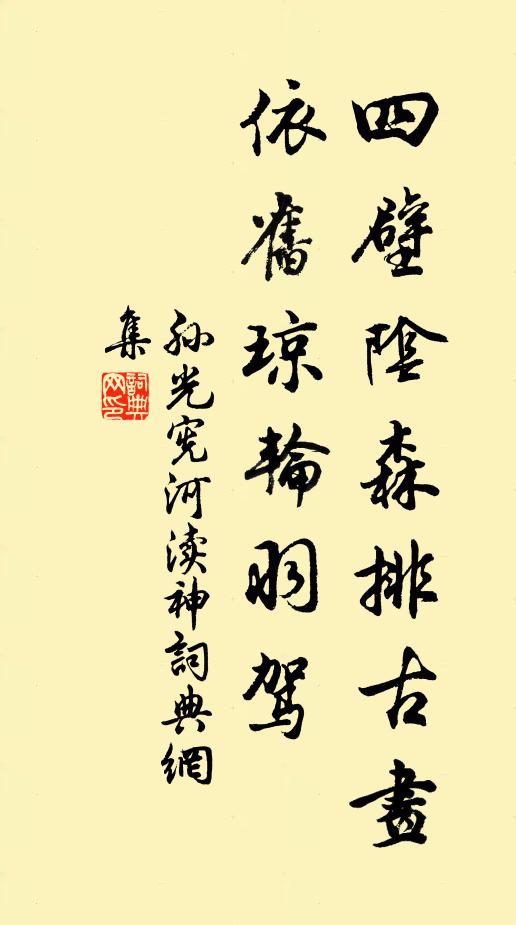 四壁陰森排古畫
依舊琼輪羽驾
孙光宪河渎神詞典網
集
詞典
网印